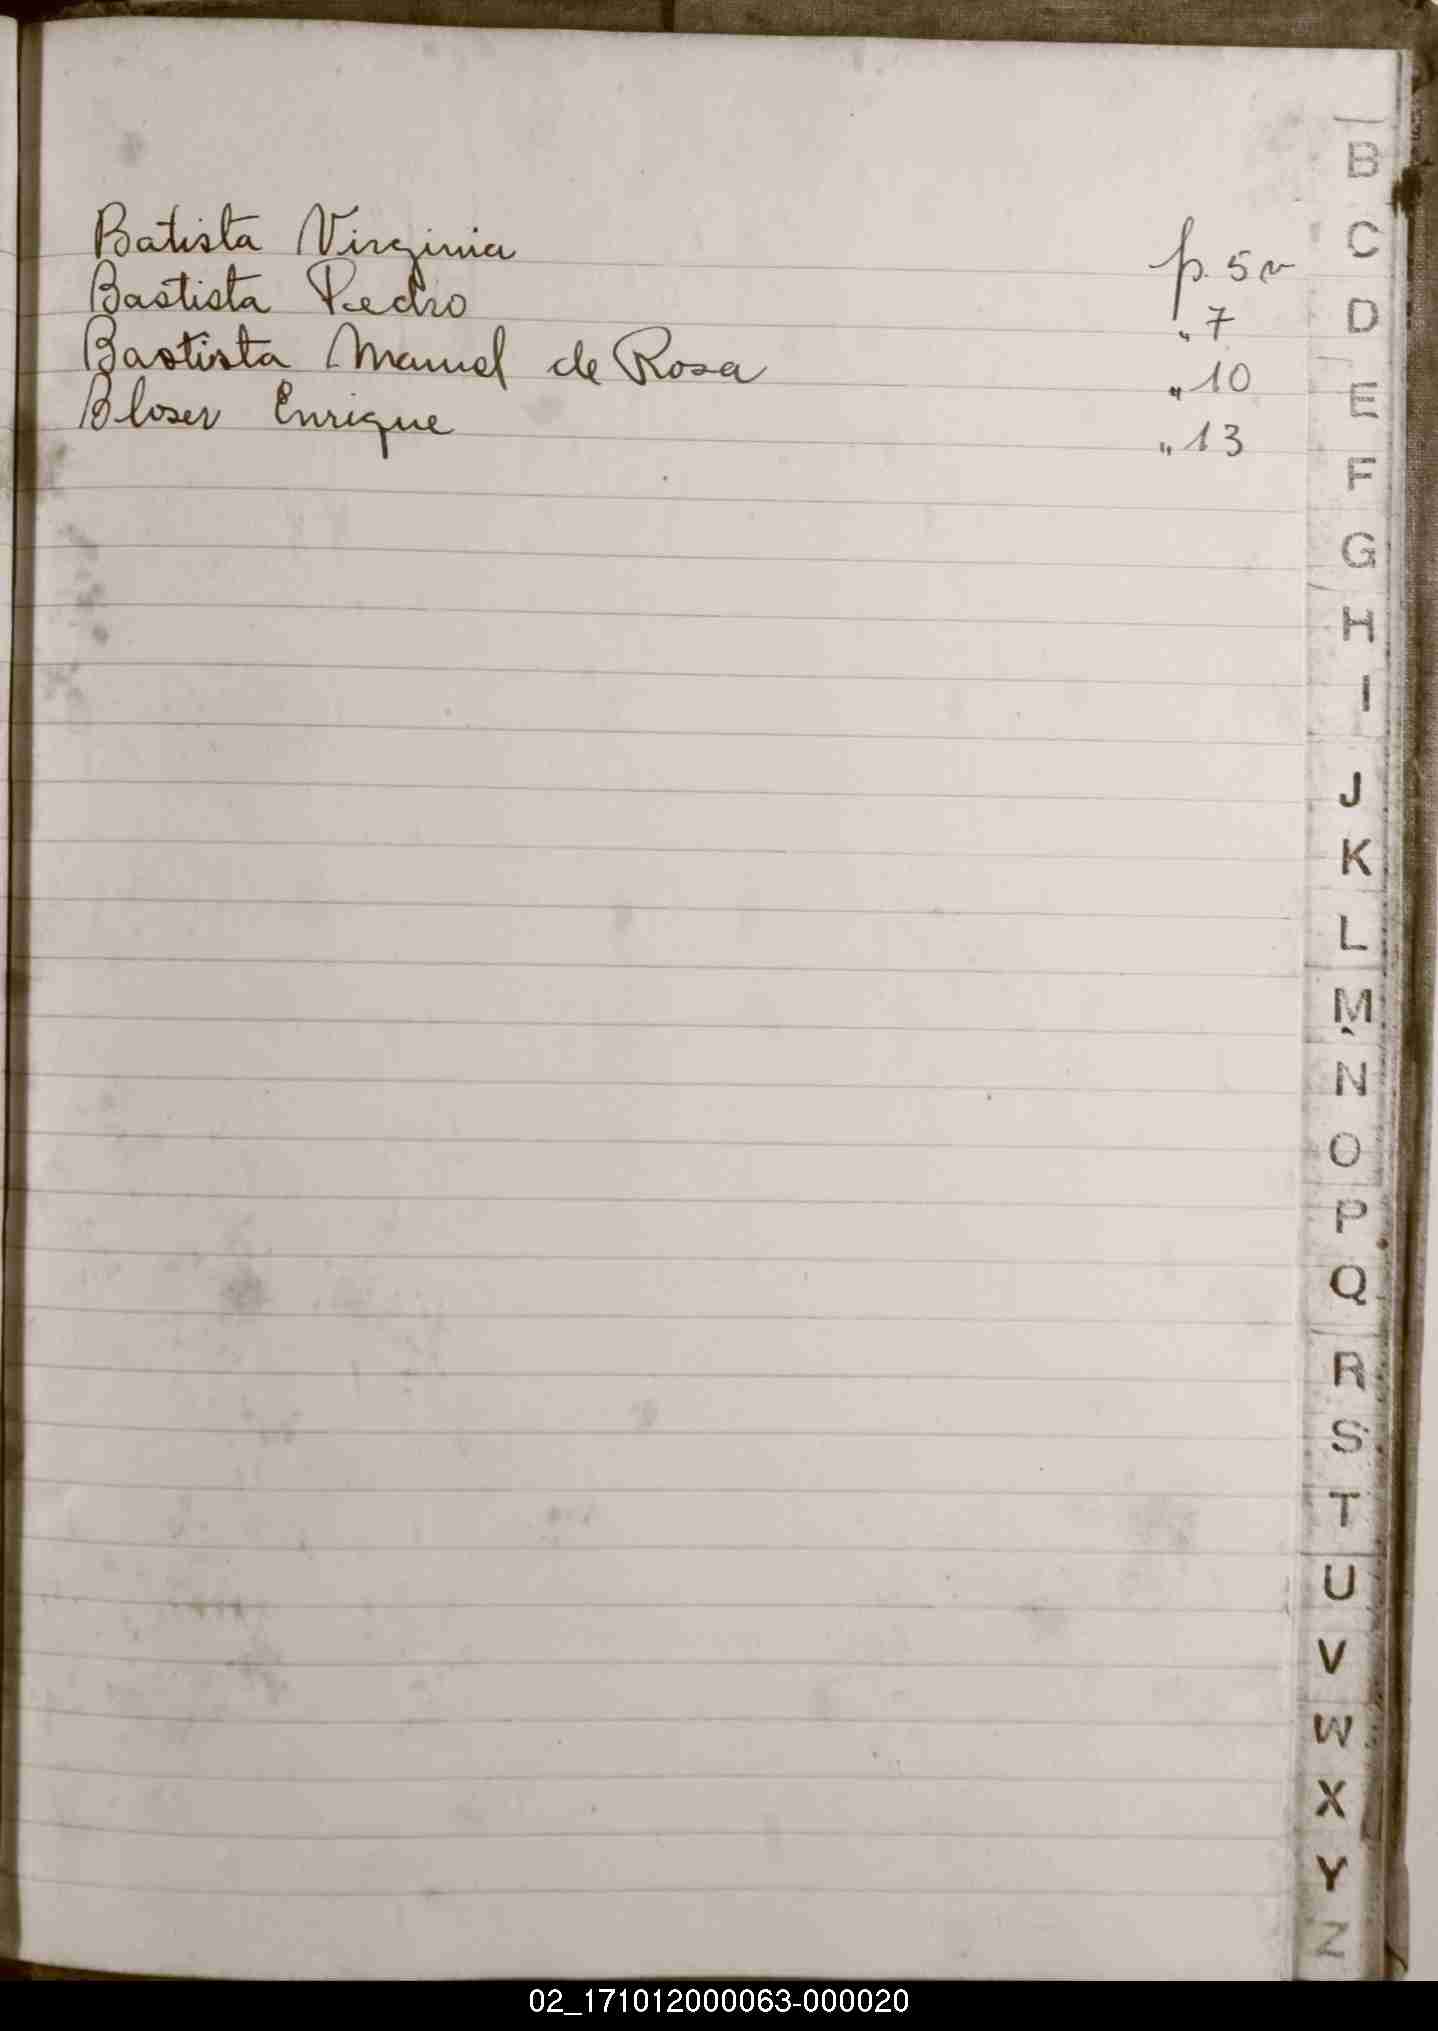 Batista Virginia p. 5 v
Bastista Pedro " 7
Bastista Manuel de Rosa " 10
Bloser Enrique " 13
B
C
D
E
F
G
H
I
J
K
L
M
N
O
P
Q
R
S
T
U
V
W
X
Y
Z
02_171012000063-000020